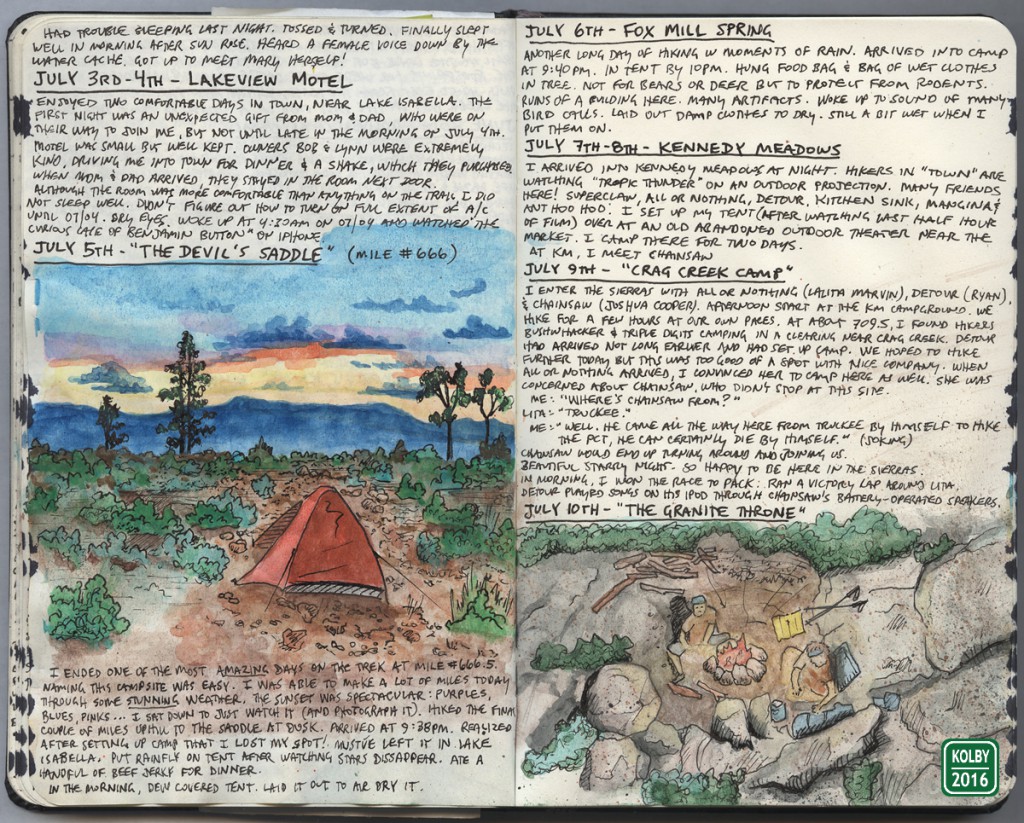 HAD TROUBLE SLEEPING LAST NIGHT. TOSSED & TURNED. FINALLY SLEPT
WELL IN MORNING AFTER SUN ROSE. HEARD A FEMALE VOICE DOWN BY THE
WATER CACHE. GOT UP TO MEET MARY HERSELF!
JULY 3RD-4TH - LAKEVIEW MOTEL
ENJOYED TWO COMFORTABLE DAYS IN TOWN, NEAR LAKE ISABELLA. THE
FIRST NIGHT WAS AN UNEXPECTED GIFT FROM MOM & DAD, WHO WERE ON
THEIR WAY TO JOIN ME, BUT NOT UNTIL LATE IN THE MORNING ON JULY 4TH.
MOTEL WAS SMALL BUT WELL KEPT. OWNERS BOB & LYNN WERE EXTREMELY
KIND, DRIVING ME INTO TOWN FOR DINNER & A SHAKE, WHICH THEY PURCHASED.
WHEN MOM & DAD ARRIVED, THEY STAYED IN THE ROOM NEXT DOOR.
ALTHOUGH THE ROOM WAS MORE COMFORTABLE THAN ANYTHING ON THE TRAIL, I DID
NOT SLEEP WELL. DIDN'T FIGURE OUT HOW TO TURN ON FULL EXTENT OF A/C
UNTIL 07/04. DRY EYES. WOKE UP AT 4:30AM ON 07/04 AND WATCHED "THE
CURIOUS CASE OF BENJAMIN BUTTON" ON IPHONE
JULY 5TH - "THE DEVIL'S SADDLE" (MILE #666)
I ENDED ONE OF THE MOST AMAZING DAYS ON THE TREK AT MILE #666.5.
NAMING THIS CAMPSITE WAS EASY. I WAS ABLE TO MAKE A LOT OF MILES TODAY
THROUGH SOME STUNNING WEATHER. THE SUNSET WAS SPECTACULAR: PURPLES,
BLUES, PINKS... I SAT DOWN TO JUST WATCH IT (AND PHOTOGRAPH IT). HIKED THE FINAL
COUPLE OF MILES UPHILL TO THE SADDLE AT DUSK. ARRIVED AT 9:38PM. REALIZED
AFTER SETTING UP CAMP THAT I LOST MY SPOT! MUST'VE LEFT IT IN LAKE
ISABELLA. PUT RAINFLY ON TENT AFTER WATCHING STARS DISSAPPEAR. ATE A
HANDFUL OF BEEF JERKY FOR DINNER.
IN THE MORNING, DEW COVERED TENT. LAID IT OUT TO AIR DRY IT.
JULY 6TH - FOX MILL SPRING
ANOTHER LONG DAY OF HIKING W MOMENTS OF RAIN. ARRIVED INTO CAMP
AT 9:40PM. IN TENT BY 10PM. HUNG FOOD BAG & BAG OF WET CLOTHES
IN TREE. NOT FOR BEARS OR DEER BUT TO PROTECT FROM RODENTS.
RUINS OF A BUILDING HERE. MANY ARTIFACTS. WOKE UP TO SOUND OF MANY
BIRD CALLS. LAID OUT DAMP CLOTHES TO DRY. STILL A BIT WET WHEN I
PUT THEM ON.
JULY 7TH-8TH - KENNEDY MEADOWS
I ARRIVED INTO KENNEDY MEADOWS AT NIGHT. HIKERS IN "TOWN" ARE
WATCHING "TROPIC THUNDER" ON AN OUTDOOR PROJECTION. MANY FRIENDS
HERE! SUPERCLAW, ALL OR NOTHING, DETOUR, KITCHEN SINK, MANGINA &
ANT HOO HOO. I SET UP MY TENT (AFTER WATCHING LAST HALF HOUR
OF FILM) OVER AT AN OLD ABANDONED OUTDOOR THEATER NEAR THE
MARKET. I CAMP THERE FOR TWO DAYS.
AT KM, I MEET CHAINSAW
JULY 9TH - "CRAG CREEK CAMP"
I ENTER THE SIERRAS WITH ALL OR NOTHING (LALITA MARVIN), DETOUR (RYAN),
& CHAINSAW (JOSHUA COOPER). AFTERNOON START AT THE KM CAMPGROUND. WE
HIKE FOR A FEW HOURS AT OUR OWN PACES. AT ABOUT 709.5, I FOUND HIKERS
BUSHWHACKER & TRIPLE DIGITS CAMPING IN A CLEARING NEAR CRAG CREEK. DETOUR
HAD ARRIVED NOT LONG EARLIER AND HAD SET UP CAMP. WE HOPED TO HIKE
FURTHER TODAY BUT THIS WAS TOO GOOD OF A SPOT WITH NICE COMPANY. WHEN
ALL OR NOTHING ARRIVED, I CONVINCED HER TO CAMP HERE AS WELL. SHE WAS
CONCERNED ABOUT CHAINSAW, WHO DIDN'T STOP AT THIS SITE.
ME: "WHERE'S CHAINSAW FROM?"
LITA: "TRUCKEE."
ME: "WELL. HE CAME ALL THE WAY HERE FROM TRUCKEE BY HIMSELF TO HIKE
THE PCT, HE CAN CERTAINLY DIE BY HIMSELF." (JOKING)
CHAINSAW WOULD END UP TURNING AROUND AND JOINING US.
BEAUTIFUL STARRY NIGHT. SO HAPPY TO BE HERE IN THE SIERRAS.
IN MORNING, I WON THE RACE TO PACK. RAN A VICTORY LAP AROUND LITA.
DETOUR PLAYED SONGS ON HIS IPOD THROUGH CHAINSAW'S BATTERY-OPERATED SPEAKERS.
JULY 10TH - "THE GRANITE THRONE"
KOLBY
2016